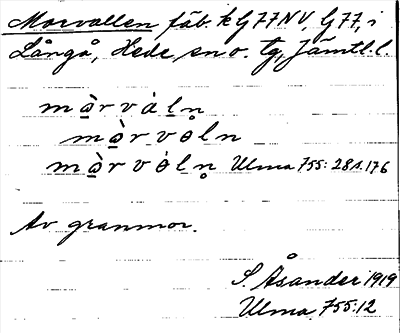 Morvallen fäb. k G77NV, G77, i
Långå, Hede sn o. tg, Jämtl. l.
màrválņ
màrvəln
màrvəlņ Ulma 755: 28 s. 176
Av granmor.
S. Åsander 1919
Ulma 755:12